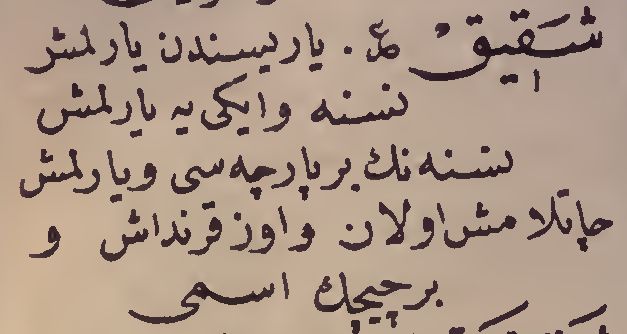 شَقِيقْ ع. ياريسندن يارلمش
نسنه وايكى يه يارلمش
نسنه نك برپارچه سى ويارلمش
چاتلامش اولان واوز قرنداش و
برچيچك اسمى